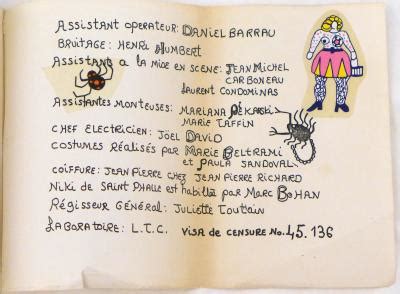 Assistant operateur: DANIEL BARRAU
BRUITAGE: HENRI HUMBERT
Assistant a la mise en scene: JEAN MICHEL
CARBONEAU
Laurent CONDOMINAS
Assistantes monteuses: MARIANA PÉKARSKI
MARIE TAFFIN
CHEF ELECTRICIEN: JOËL DAVID
COSTUMES RÉALISÉS PAR MARIE BELTRAMI
et PAULA SANDOVAL
COIFFURE: JEAN PIERRE CHEZ JEAN PIERRE RICHARD
NIKI DE SAINT PHALLE est habillée par MARC BOHAN
RÉGISSEUR GÉNÉRAL: JULIETTE TOUTAIN
LABORATOIRE: L.T.C. VISA DE CENSURE No. 45.136